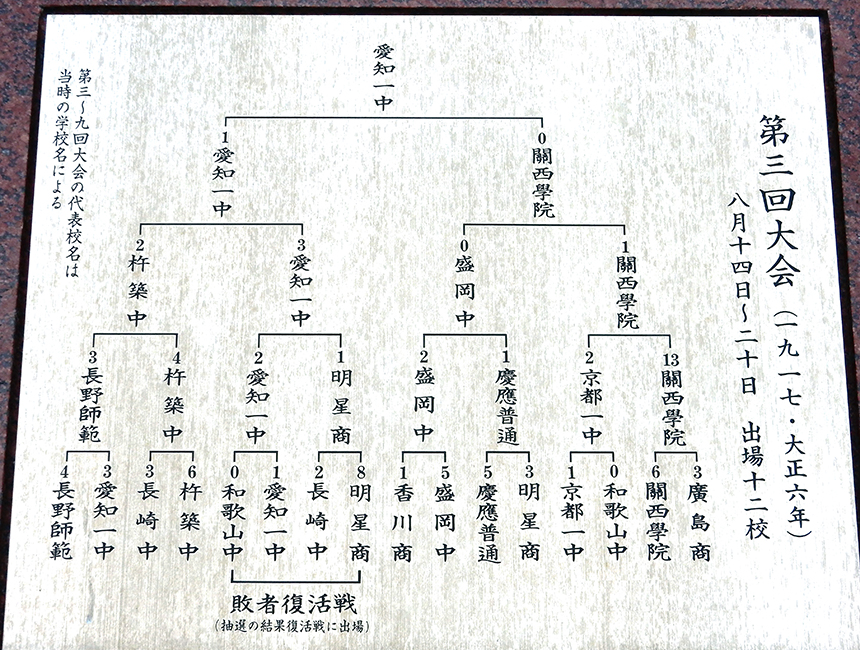 第三回大会（一九一七・大正六年）
八月十四日～二十日　出場十二校
愛知一中
1 愛知一中
0 關西學院
2 杵築中
3 愛知一中
0 盛岡中
1 關西學院
3 長野師範
4 杵築中
2 愛知一中
1 明星商
2 盛岡中
1 慶應普通
2 京都一中
13 關西學院
4 長野師範
3 愛知一中
3 長崎中
6 杵築中
0 和歌山中
1 愛知一中
2 長崎中
8 明星商
1 香川商
5 盛岡中
5 慶應普通
3 明星商
1 京都一中
0 和歌山中
6 關西學院
3 廣島商
敗者復活戦
（抽選の結果復活戦に出場）
第三～九回大会の代表校名は
当時の学校名による